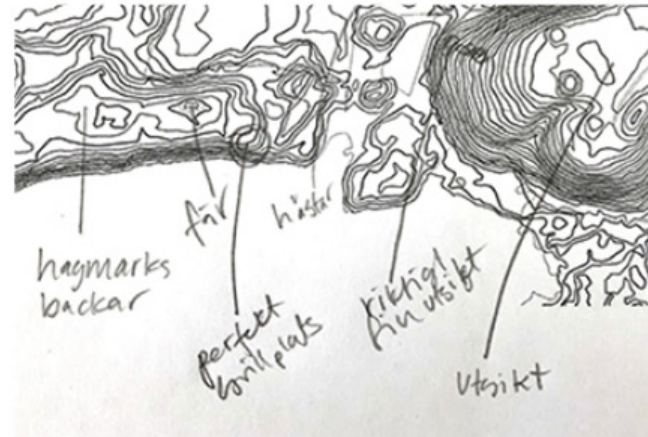 hagmarks
backar
får
perfekt
grillplats
hästar
riktigt
fin utsikt
utsikt